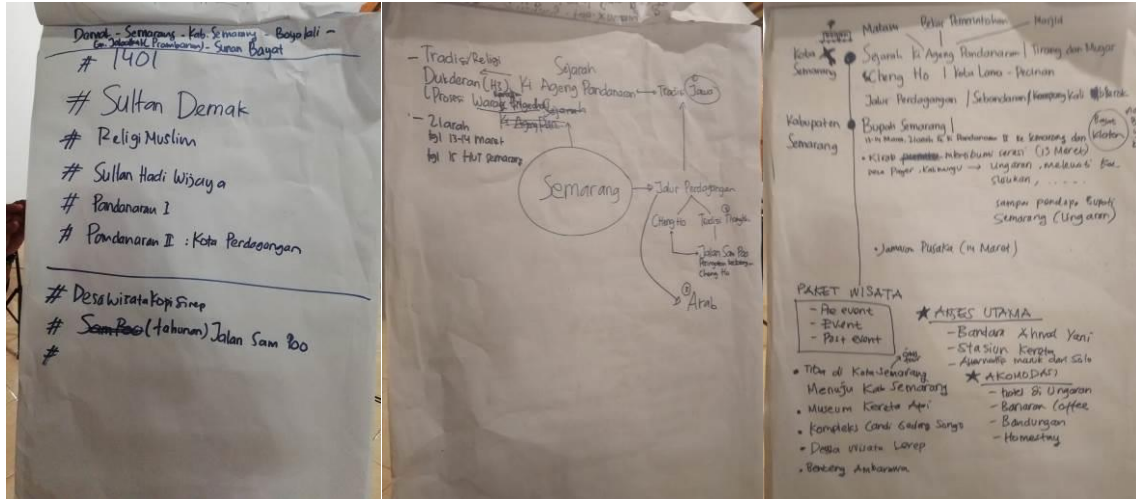 Demak - Semarang - Kab. Semarang - Boyolali -
Prambanan) - Sunan Bayat
# 1401
# Sultan Demak
# Religi Muslim
# Sultan Hadi Wijaya
# Pandanaran I
# Pandanaran II : Kota Perdagangan
# Desa wisata Kopi Sirep
# Sam Poo (tahunan) Jalan Sam Poo
#
- Tradisi/Religi
Dukderan (HS)
(Prosesi
- Ziarah
tgl 13-14 maret
tgl 15 HUT Semarang
Sejarah
Ki Ageng Pandanaran
Tradisi Jawa
Semarang
Jalur Perdagangan
Cheng Ho
Tradisi
Jalan Sam Poo
Cheng Ho
Arab
Mataram
Pemerintahan
Masjid
Kota
Semarang
Sejarah Ki Ageng Pandanaran | Tirang dan Mugar
Cheng Ho | Kota Lama - Pecinan
Jalur Perdagangan / Sebandaran /
Kabupaten
Semarang
Bupati Semarang |
Pandanaran II ke Semarang dan
Klaten
• Kirab serasi (13 Maret)
→ Ungaran, melewati
sampai pendapa Bupati
Semarang (Ungaran)
• Jamasan Pusaka (14 Maret)
PAKET WISATA
- Pre event
- Event
- Post event
• Tiba di Kota Semarang
Menuju Kab Semarang
• Museum Kereta Api
• Kompleks Candi Gedong Songo
• Desa Wisata Lerep
• Benteng Ambarawa
★ AKSES UTAMA
- Bandara Ahmad Yani
- Stasiun Kereta
- Alternatif dari Solo
★ AKOMODASI
- hotel di Ungaran
- Banaran Coffee
- Bandungan
- Homestay